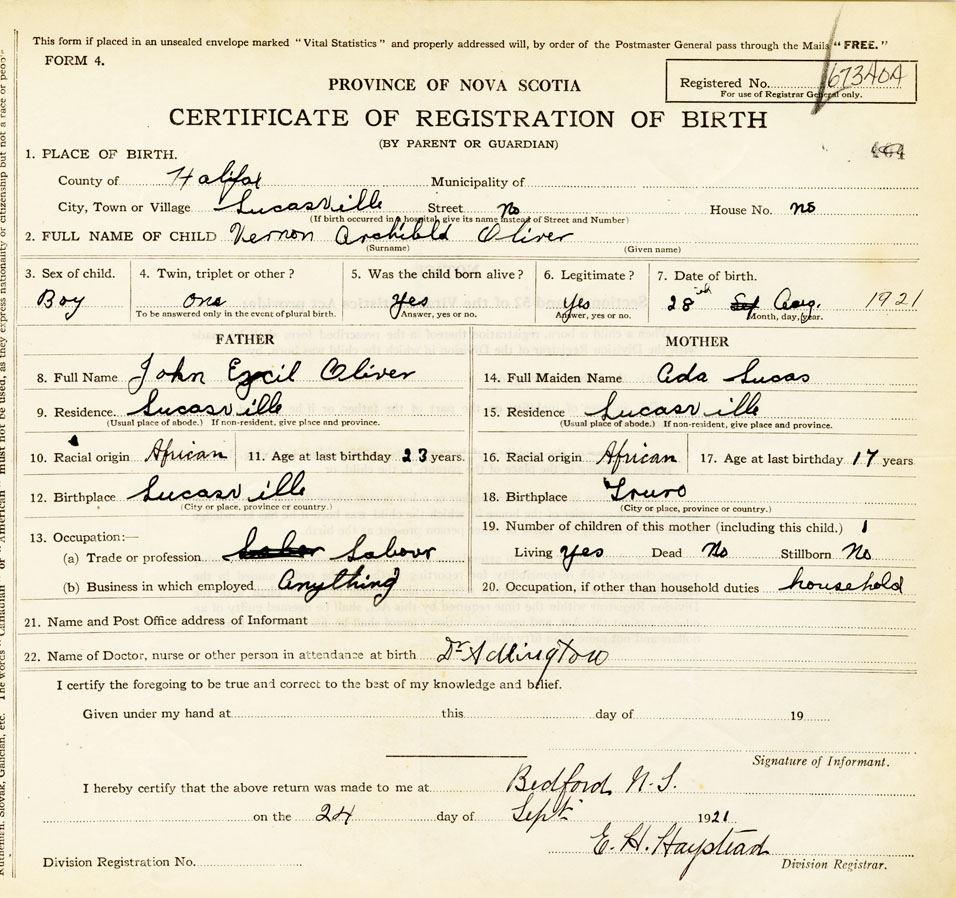 This form if placed in an unsealed envelope marked "Vital Statistics" and properly addressed will, by order of the Postmaster General pass through the Mails "FREE."
FORM 4.
PROVINCE OF NOVA SCOTIA
Registered No. 67340A
For use of Registrar General only.
CERTIFICATE OF REGISTRATION OF BIRTH
(BY PARENT OR GUARDIAN)
1. PLACE OF BIRTH.
County of Halifax Municipality of
City, Town or Village Lucasville Street No House No. no
(If birth occurred in a hospital, give its name instead of Street and Number)
2. FULL NAME OF CHILD Vernon Archibald Oliver
(Surname) (Given name)
3. Sex of child. 4. Twin, triplet or other? 5. Was the child born alive? 6. Legitimate? 7. Date of birth.
Boy one Yes Yes 28th Aug. 1921
To be answered only in the event of plural birth. Answer, yes or no. Answer, yes or no. Month, day, year.
FATHER MOTHER
8. Full Name John Oliver 14. Full Maiden Name Ada Lucas
9. Residence Lucasville 15. Residence Lucasville
(Usual place of abode.) If non-resident, give place and province. (Usual place of abode.) If non-resident, give place and province.
10. Racial origin African 11. Age at last birthday 23 years. 16. Racial origin African 17. Age at last birthday 17 years
12. Birthplace Lucasville 18. Birthplace Truro
(City or place, province or country.) (City or place, province or country.)
19. Number of children of this mother (including this child.) 1
13. Occupation:—
(a) Trade or profession Labour Living yes Dead No Stillborn No
(b) Business in which employed Anything 20. Occupation, if other than household duties household
21. Name and Post Office address of Informant
22. Name of Doctor, nurse or other person in attendance at birth Dr
I certify the foregoing to be true and correct to the best of my knowledge and belief.
Given under my hand at this day of 19
Signature of Informant.
I hereby certify that the above return was made to me at Bedford N.S.
on the 24 day of Sept 1921
E. H. Haystead
Division Registration No. Division Registrar.